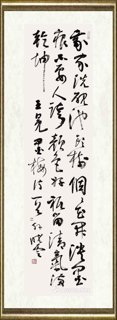 我家洗硯池頭樹個個花開淡墨
痕不要人誇顏色好祇留清氣滿
乾坤
王冕墨梅詩